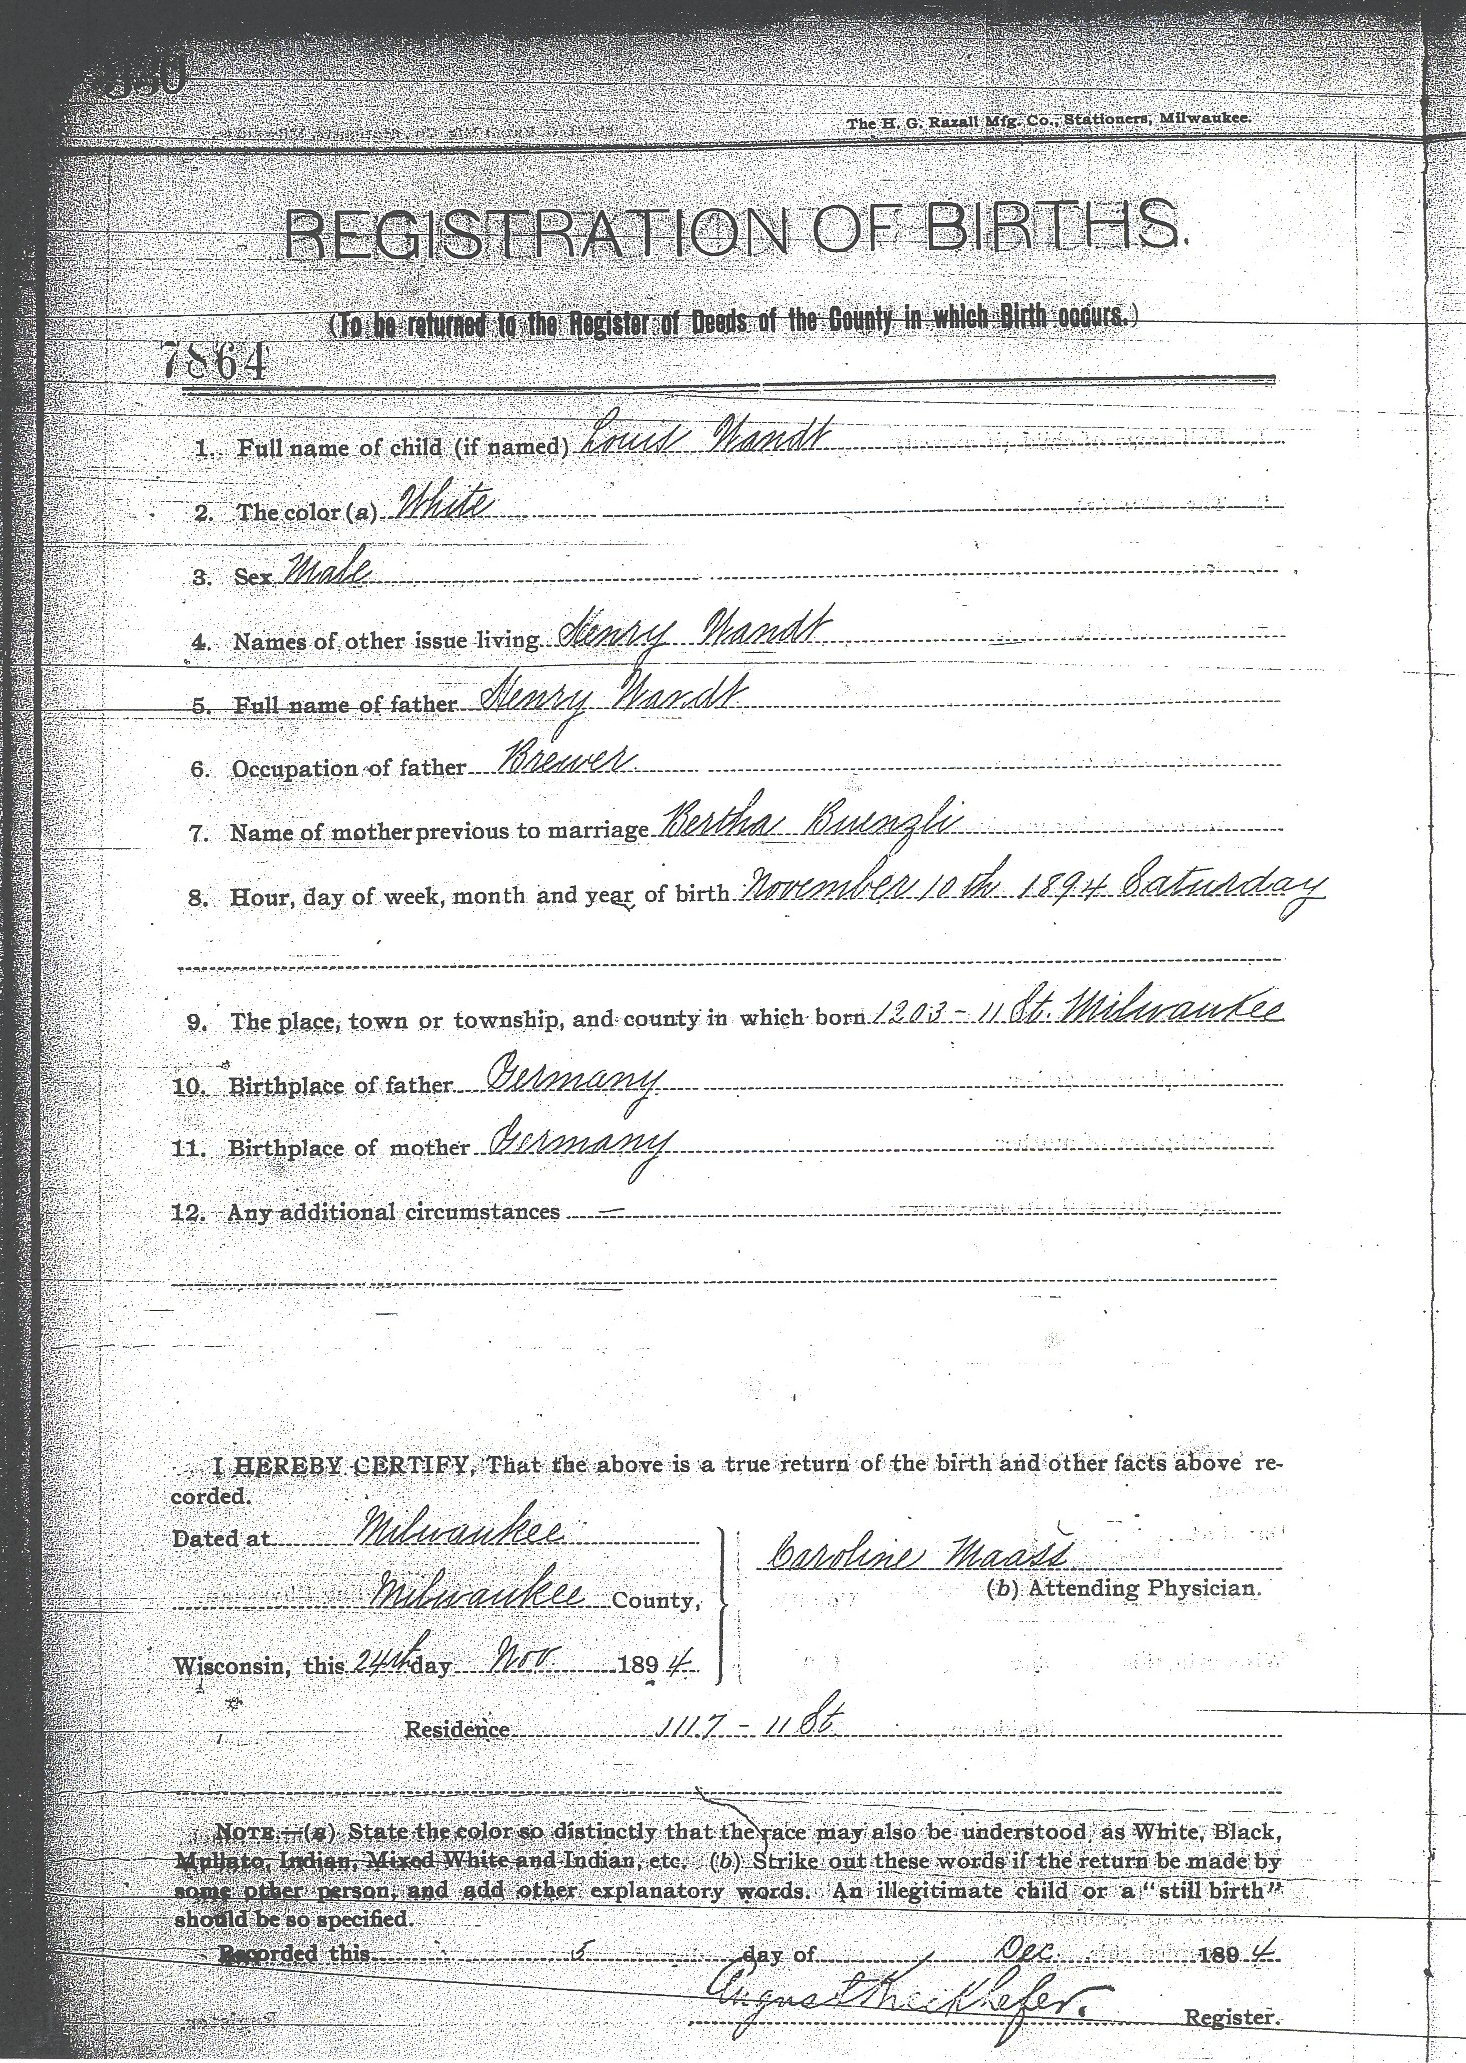 The H. G. Razall Mfg. Co., Stationers, Milwaukee.
REGISTRATION OF BIRTHS.
(To be returned to the Register of Deeds of the County in which Birth occurs.)
7864
1. Full name of child (if named) Louis Wandt
2. The color (a) White
3. Sex Male
4. Names of other issue living Henry Wandt
5. Full name of father Henry Wandt
6. Occupation of father Brewer
7. Name of mother previous to marriage Bertha Buenzli
8. Hour, day of week, month and year of birth November 10th 1894 Saturday
9. The place, town or township, and county in which born 1203 - 11 St. Milwaukee
10. Birthplace of father Germany
11. Birthplace of mother Germany
12. Any additional circumstances —
I HEREBY CERTIFY, That the above is a true return of the birth and other facts above re-
corded.
Dated at Milwaukee
Caroline Maass
(b) Attending Physician.
Milwaukee County,
Wisconsin, this 24th day Nov 1894
Residence 1117 - 11 St
NOTE.—(a) State the color so distinctly that the race may also be understood, as White, Black,
Mullato, Indian, Mixed White and Indian, etc. (b) Strike out these words if the return be made by
some other person, and add other explanatory words. An illegitimate child or a "still birth"
should be so specified.
Recorded this 5 day of Dec 1894
August Rieckhefer.
Register.